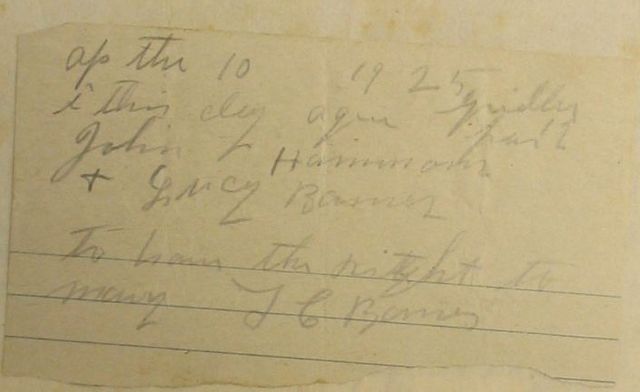 ap the 10 1925
i this day agree
John L Hammons
+ Lucy Barnes
To have the right to
mary T C Barnes